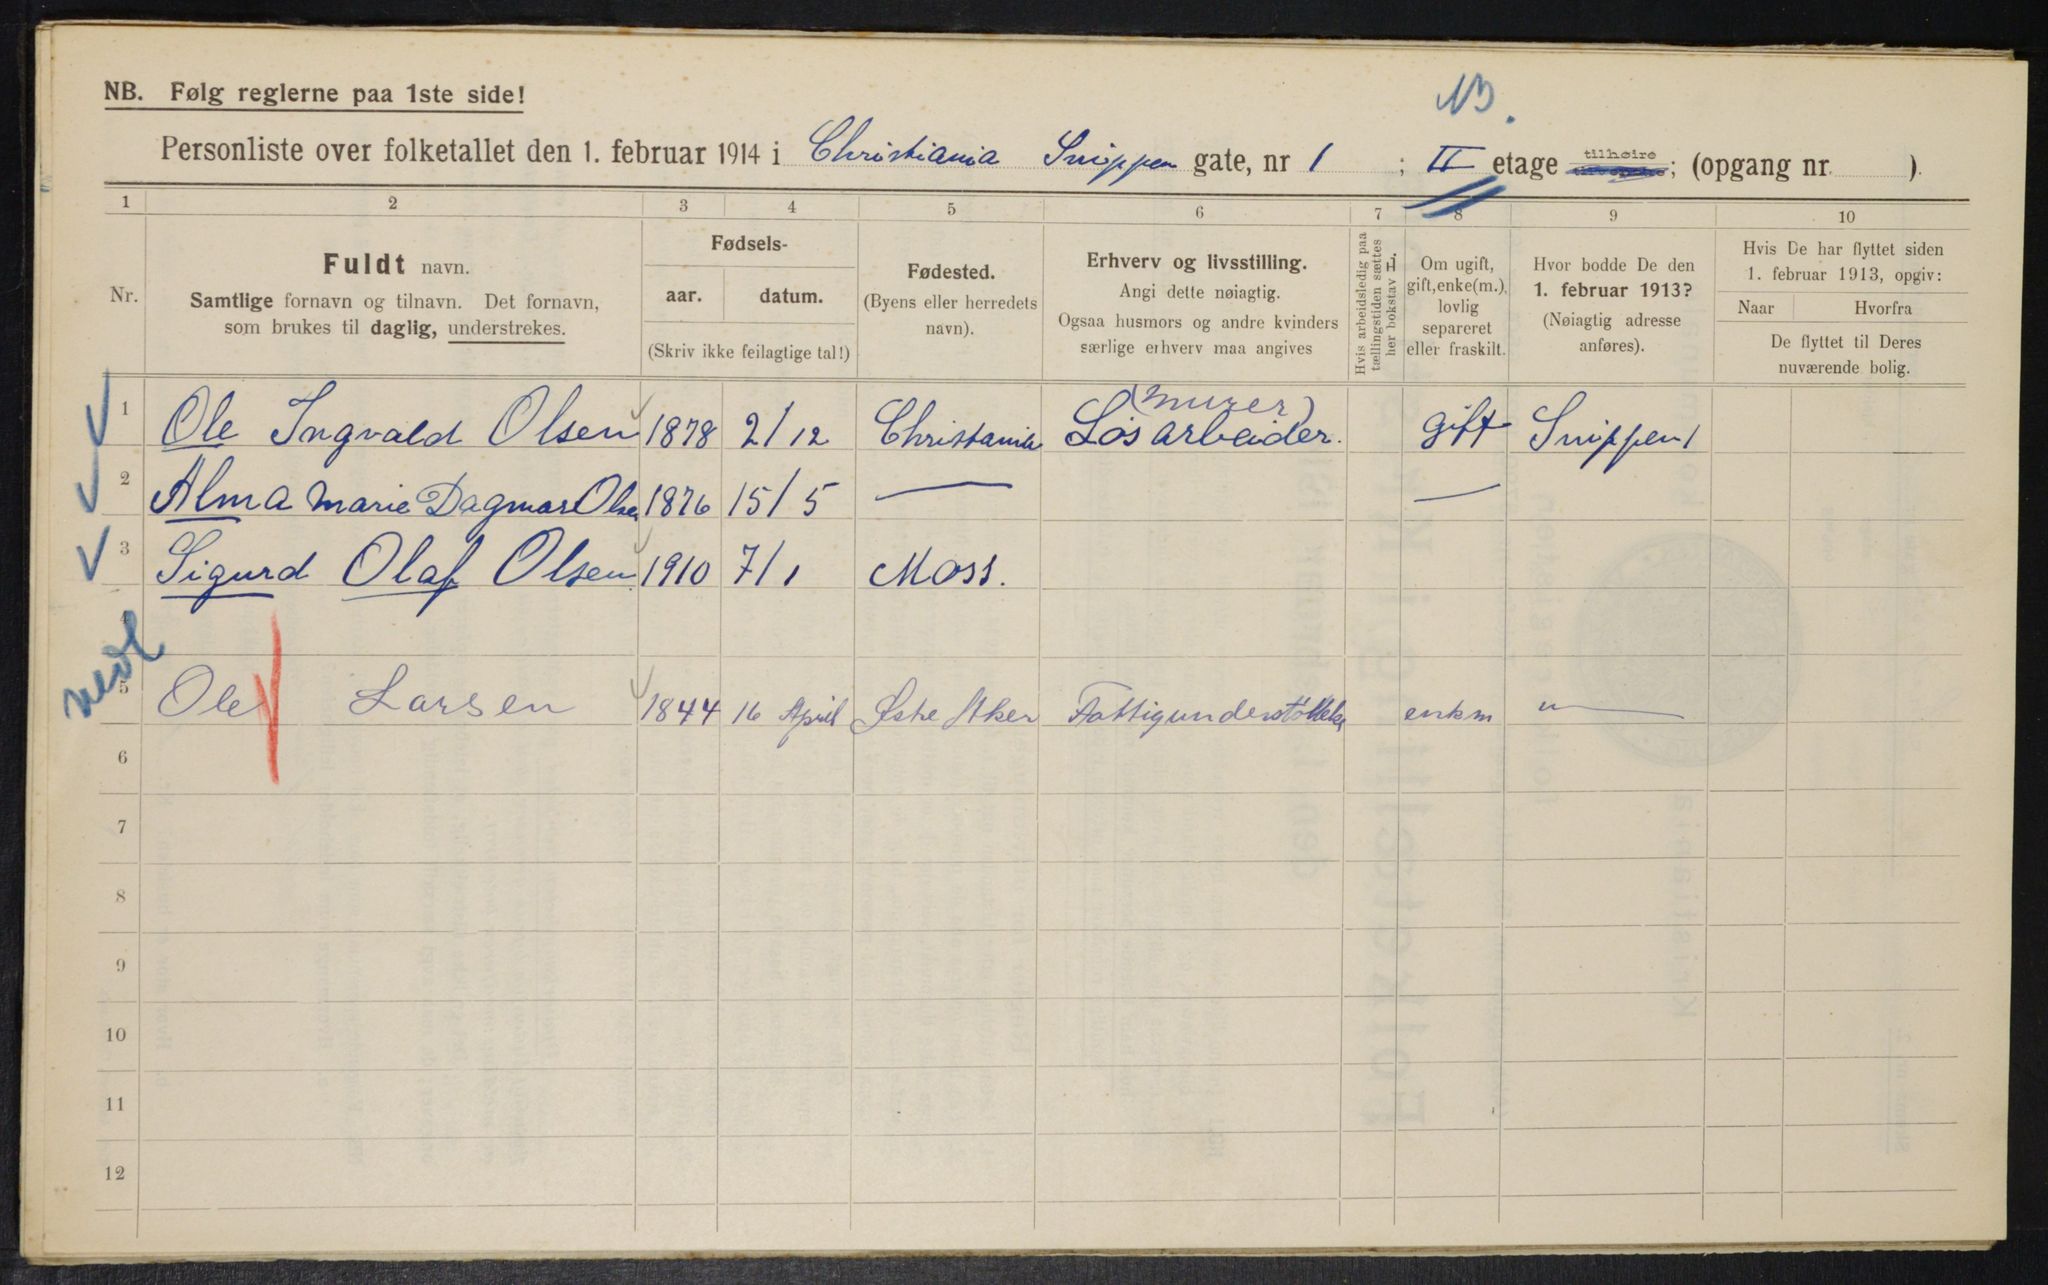 NB. Følg reglerne paa 1ste side!
NB.
Personliste over folketallet den 1. februar 1914 i Christiania Snippen gate, nr 1 ; II etage tilhøire; (opgang nr. ).
1 2 3 4 5 6 7 8 9 10
Nr.
Fuldt navn.
Samtlige fornavn og tilnavn. Det fornavn,
som brukes til daglig, understrekes.
Fødsels-
aar. datum.
(Skriv ikke feilagtige tal!)
Fødested.
(Byens eller herredets
navn).
Erhverv og livsstilling.
Angi dette nøiagtig.
Ogsaa husmors og andre kvinders
særlige erhverv maa angives
Hvis arbeidsledig paa
tællingstiden sættes
her bokstav L.
Om ugift,
gift, enke(m.),
lovlig
separeret
eller fraskilt.
Hvor bodde De den
1. februar 1913?
(Nøiagtig adresse
anføres).
Hvis De har flyttet siden
1. februar 1913, opgiv:
Naar Hvorfra
De flyttet til Deres
nuværende bolig.
(murer)
1 Ole Ingvald Olsen 1878 2/12 Christania Løsarbeider. gift Snippen 1
2 Alma Marie Dagmar Olsen 1876 15/5 — —
3 Sigurd Olaf Olsen 1910 7/1 Moss.
4
5 Ole Larsen 1844 16 April Østre Aker Fattigunderstøttelse enkm " —
6
7
8
9
10
11
12